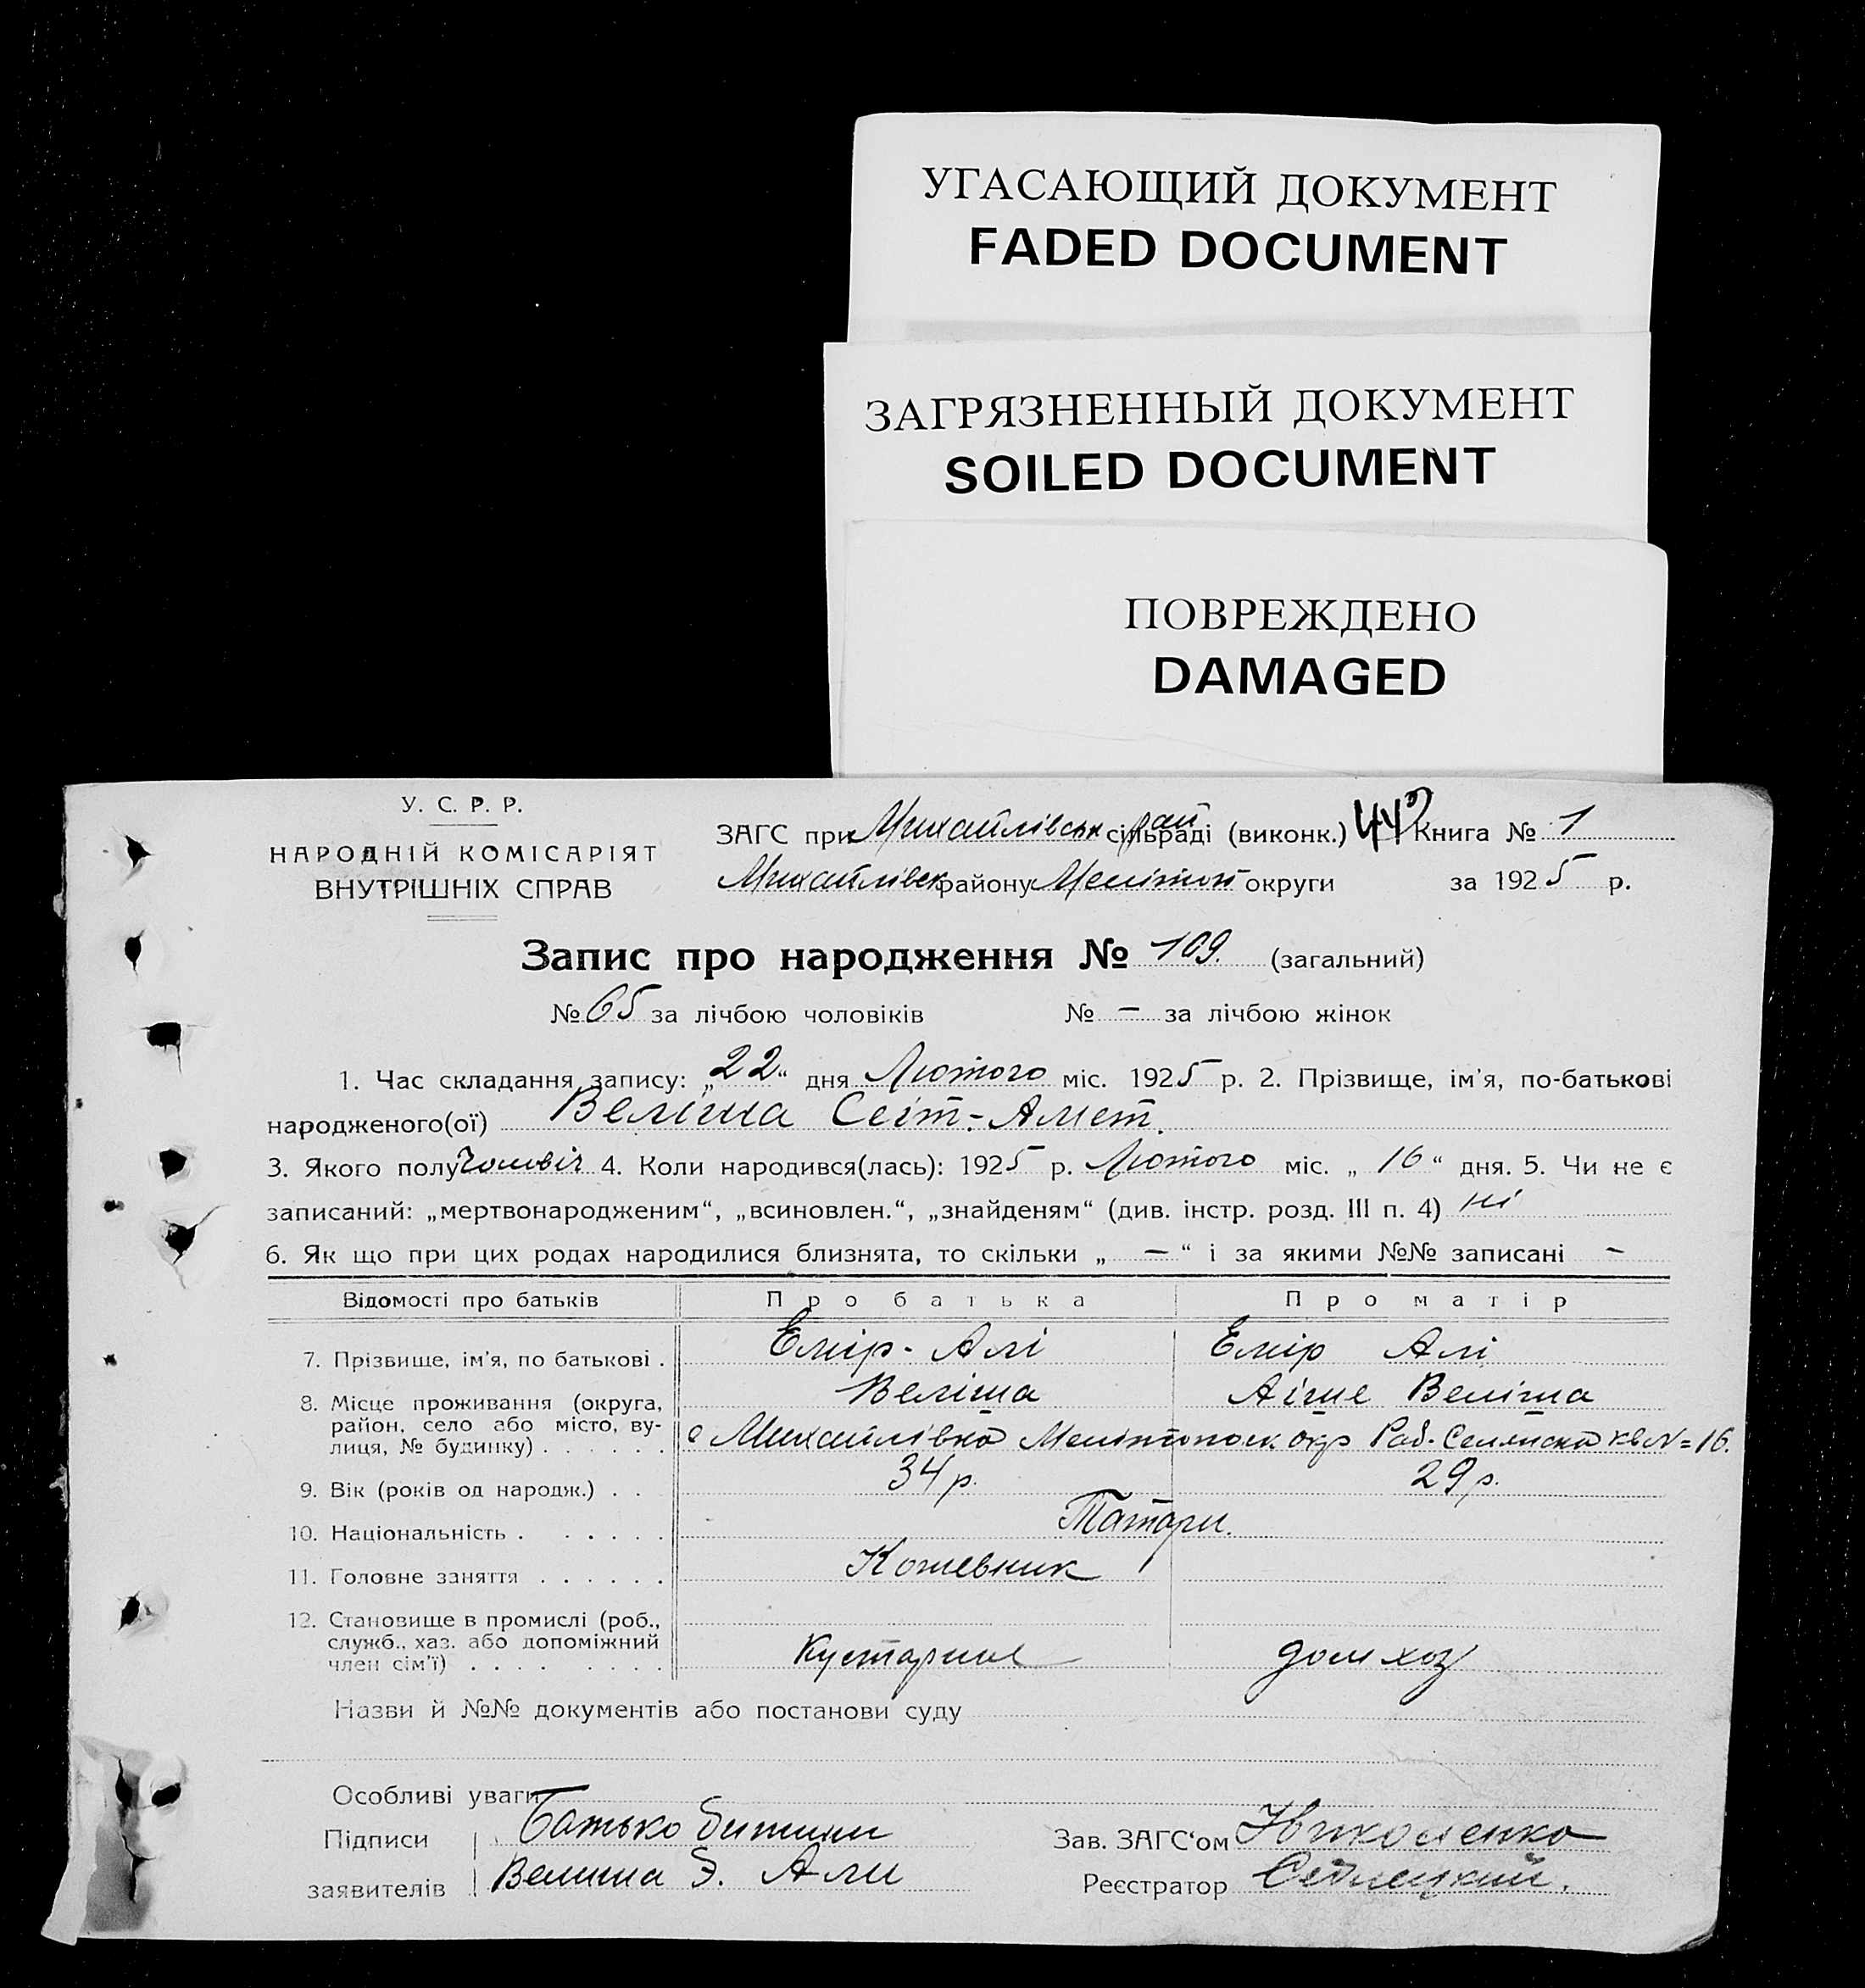 УГАСАЮЩИЙ ДОКУМЕНТ
FADED DOCUMENT
ЗАГРЯЗНЕННЫЙ ДОКУМЕНТ
SOILED DOCUMENT
ПОВРЕЖДЕНО
DAMAGED
У. С. Р. Р.
НАРОДНІЙ КОМІСАРІЯТ
ВНУТРІШНІХ СПРАВ
ЗАГС при Михайлівськ рай сільраді (виконк.) Книга № 1
Михайлівск району Мелітоп округи за 1925 р.
Запис про народження № 109. (загальний)
№ 65 за лічбою чоловіків № — за лічбою жінок
1. Час складання запису: „22“ дня Лютого міс. 1925 р. 2. Прізвище, ім'я, по-батькові
народженого(ої) Веліша Сеіт-Амет.
3. Якого полу Чоловіч 4. Коли народився(лась): 1925 р. Лютого міс. „ 16 “ дня. 5. Чи не є
записаний: „мертвонародженим“, „всиновлен.“, „знайденям“ (див. інстр. розд. III п. 4) ні
6. Як що при цих родах народилися близнята, то скільки „ — “ і за якими №№ записані -
Відомості про батьків Про батька Про матір
7. Прізвище, ім'я, по батькові . Емір-Алі Емір Алі
Веліша Аіше Веліша
8. Місце проживання (округа,
район, село або місто, ву-
лиця, № будинку) . . . . . . с Михайлівка Мелітопольск окр Раб. Селянска кв N=16.
9. Вік (років од народж.) . . 34 р. 29 р.
10. Національність . . . . . . Татари.
11. Головне заняття . . . . . . Кожевник
12. Становище в промислі (роб.,
служб., хаз. або допоміжний
член сім'ї) . . . . . . . . Кустарник дом хоз
Назви й №№ документів або постанови суду
Особливі уваги
Підписи Батько дитини Зав. ЗАГС'ом Николенко
заявителів Велиша Э. Али Реєстратор Седлецкий.